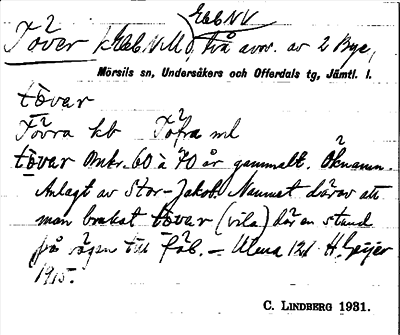 EcbNV
Töver kEcb. NVM), två avsr. av 2 Bye,
Mörsils sn, Undersåkers och Offerdals tg, Jämtl. l.
tövar
Tövra kb Töfra ml
tövar Omkr. 60 à 70 år gammalt. Öknamn.
Anlagt av Stor-Jakob. Namnet därav att
man brukat tövar (vila) där en stund
på vägen till fäb. – Ulena 121 H. Geijer
1915.
C. LINDBERG 1931.